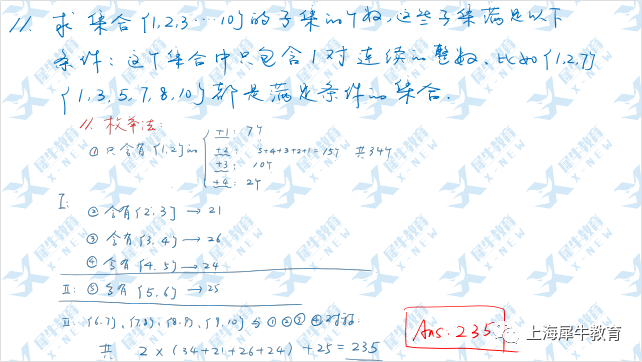 11. 求集合{1,2,3…10}的子集的个数,这些子集满足以下
条件:这个集合中只包含1对连续的整数.比如{1,2,7}
{1,3,5,7,8,10}都是满足条件的集合.
11. 枚举法:
+1: 7个
① 只含有{1,2}的 +2: 5+4+3+2+1=15个 共34个
+3: 10个
+4: 2个
I:
② 含有{2,3} → 21
③ 含有{3,4} → 26
④ 含有{4,5} → 24
II: ⑤ 含有{5,6} → 25
{6,7}、{7,8}、{8,9}、{9,10}与①②③④对称
共 2×(34+21+26+24)+25=235
Ans: 235
上海犀牛教育
犀牛教育
X-NEW